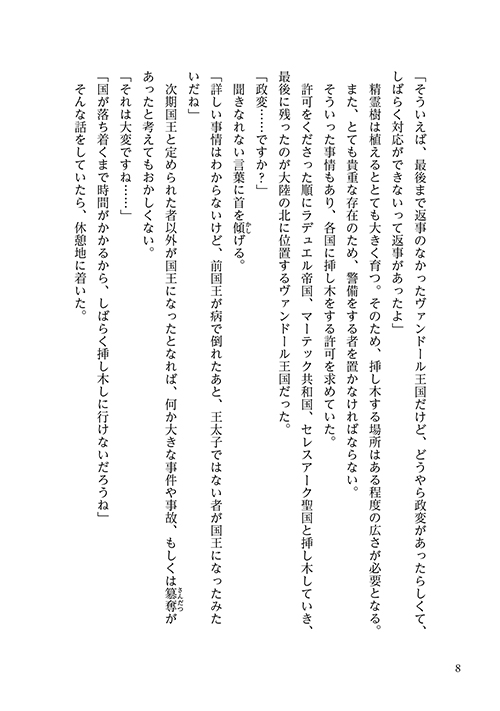 「そういえば、最後まで返事のなかったヴァンドール王国だけど、どうやら政変があったらしくて、
しばらく対応ができないって返事があったよ」
精霊樹は植えるととても大きく育つ。そのため、挿し木する場所はある程度の広さが必要となる。
また、とても貴重な存在のため、警備をする者を置かなければならない。
そういった事情もあり、各国に挿し木をする許可を求めていた。
許可をくださった順にラデュエル帝国、マーテック共和国、セレスアーク聖国と挿し木していき、
最後に残ったのが大陸の北に位置するヴァンドール王国だった。
「政変……ですか？」
聞きなれない言葉に首を傾げる。
「詳しい事情はわからないけど、前国王が病で倒れたあと、王太子ではない者が国王になったみた
いだね」
次期国王と定められた者以外が国王になったとなれば、何か大きな事件や事故、もしくは簒奪が
あったと考えてもおかしくない。
「それは大変ですね……」
「国が落ち着くまで時間がかかるから、しばらく挿し木しに行けないだろうね」
そんな話をしていたら、休憩地に着いた。
8